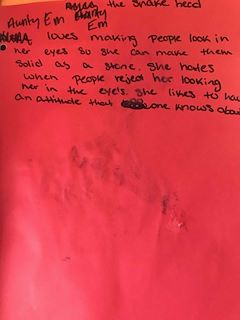 the snake head
Aunty Em Aunty
Em
loves making people look in
her eyes so she can make them
solid as a stone. She hates
when people reject her looking
her in the eyes. She likes to hav
an attitude that one knows abou